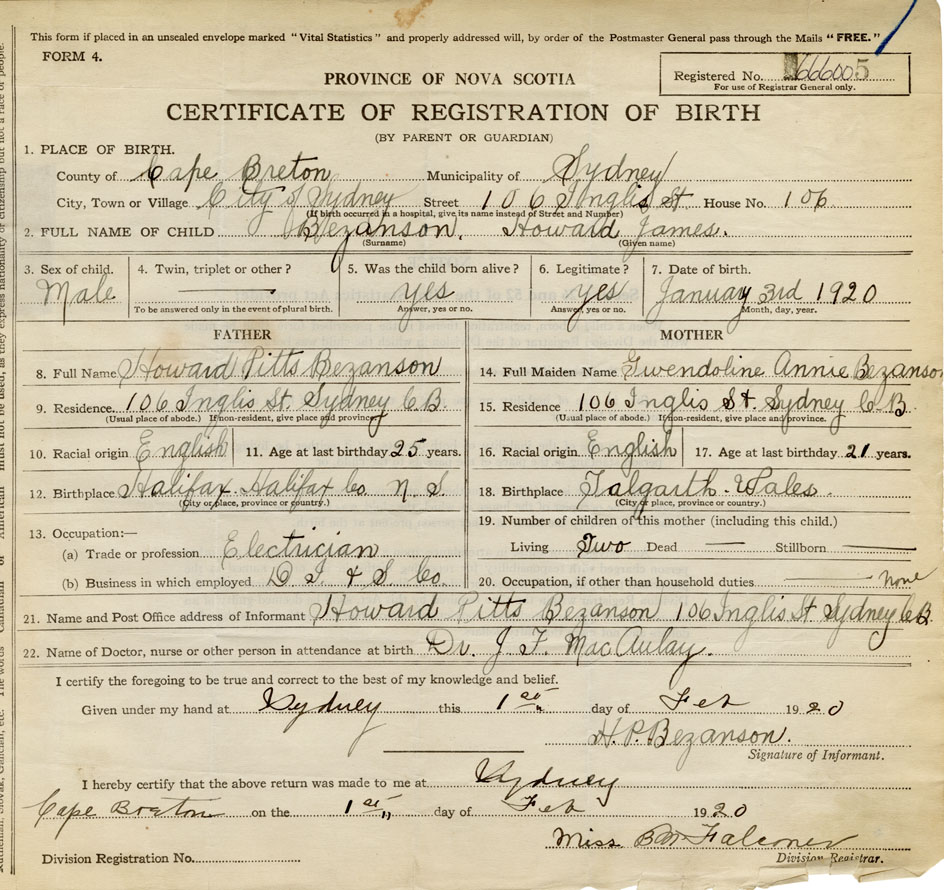 This form if placed in an unsealed envelope marked "Vital Statistics" and properly addressed will, by order of the Postmaster General pass through the Mails "FREE."
FORM 4.
PROVINCE OF NOVA SCOTIA
Registered No. 666005
For use of Registrar General only.
CERTIFICATE OF REGISTRATION OF BIRTH
(BY PARENT OR GUARDIAN)
1. PLACE OF BIRTH.
County of Cape Breton Municipality of Sydney
City, Town or Village City of Sydney Street 106 Inglis St. House No. 106
(If birth occurred in a hospital, give its name instead of Street and Number)
2. FULL NAME OF CHILD Bezanson, Howard James.
(Surname) (Given name)
3. Sex of child. 4. Twin, triplet or other? 5. Was the child born alive? 6. Legitimate? 7. Date of birth.
Male —— yes yes January 3rd 1920
To be answered only in the event of plural birth. Answer, yes or no. Answer, yes or no. Month, day, year.
FATHER MOTHER
8. Full Name Howard Pitts Bezanson 14. Full Maiden Name Gwendoline Annie Bezanson
9. Residence. 106 Inglis St. Sydney C.B. 15. Residence 106 Inglis St. Sydney C.B
(Usual place of abode.) If non-resident, give place and province. (Usual place of abode.) If non-resident, give place and province.
10. Racial origin English 11. Age at last birthday 25 years. 16. Racial origin English 17. Age at last birthday 21 years.
12. Birthplace Halifax. Halifax Co. N.S. 18. Birthplace Talgarth. Wales.
(City or place, province or country.) (City or place, province or country.)
13. Occupation:— 19. Number of children of this mother (including this child.)
(a) Trade or profession Electrician Living Two Dead — Stillborn ——
(b) Business in which employed D I & S Co. 20. Occupation, if other than household duties —— None
21. Name and Post Office address of Informant Howard Pitts Bezanson 106 Inglis St Sydney C.B.
22. Name of Doctor, nurse or other person in attendance at birth Dr. J. F. MacAulay.
I certify the foregoing to be true and correct to the best of my knowledge and belief.
Given under my hand at Sydney this 1st day of Feb 1920
H.P. Bezanson.
Signature of Informant.
I hereby certify that the above return was made to me at Sydney
Cape Breton on the 1st day of Feb 1920
Miss Falconer
Division Registrar.
Division Registration No.